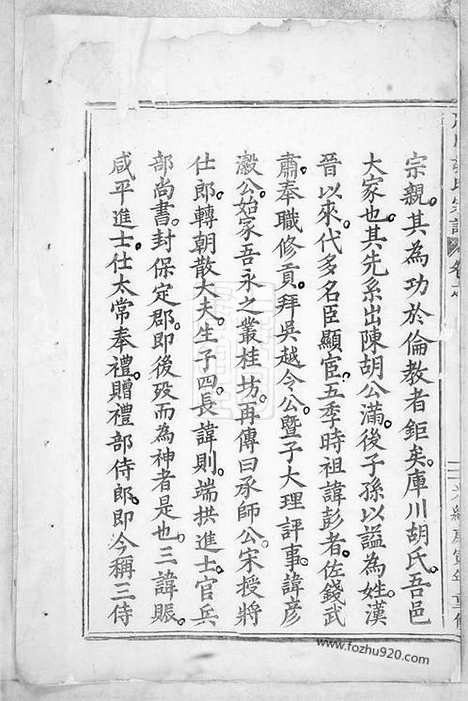 宗親。其為功於倫教者鉅矣。庫川胡氏。吾邑
大家也。其先系出陳胡公滿。後子孫以謚為姓。漢
晉以來。代多名臣顯宦。五季時祖諱彭者。佐錢武
肅。奉職修貢。拜吳越令公。暨子大理評事。諱彥
瀫公。始家吾永之叢桂坊。再傳曰承師公。宋授將
仕郎。轉朝散大夫。生子四。長諱則。端拱進士。官兵
部尚書。封保定郡。即後歿而為神者是也。三諱賑。
咸平進士。仕太常奉禮。贈禮部侍郎。即今稱三侍
www.fozhu920.com